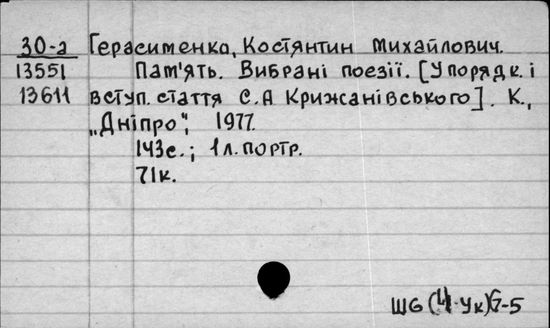 30-а Герасименко, Костянтин Михайлович.
13551 Пам'ять. Вибрані поезії. [Упорядк. і
13611 вступ. стаття С.А Крижанівського]. К.,
„Дніпро", 1977.
143с.; 1л. портр.
71к.
Ш6(4.Ук)Г-5